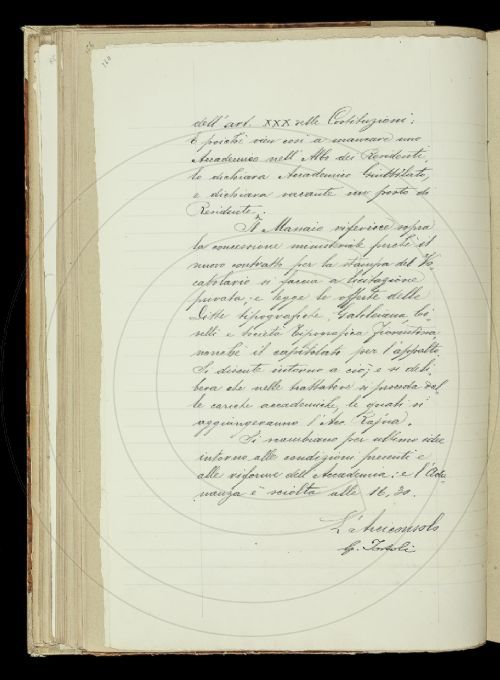 dell'art. XXX delle Costituzioni:
E poichè vien così a mancare uno
Accademico nell'Albo dei Residente,
lo dichiara Accademico Giubilato,
e dichiara vacante un posto di
Residente.
Il Massaio riferisce sopra
la concessione ministeriale perchè il
nuovo contratto per la stampa del Vo-
cabolario si faccia a licitazione
privata, e legge le offerte delle
Ditte tipografiche: Galileiana, Ci-
velli e Società Tipografica Fiorentina
nonchè il capitolato per l'appalto.
Si discute intorno a ciò; e si deli-
bera che nelle trattative si proceda dal-
le cariche accademiche, le quali si
aggiungeranno l'Acc. Rajna.
Si scambiano per ultimo idee
intorno alle condizioni presenti e
alle riforme dell'Accademia; e l'Adu-
nanza è sciolta alle 16,30.
L'Arciconsolo